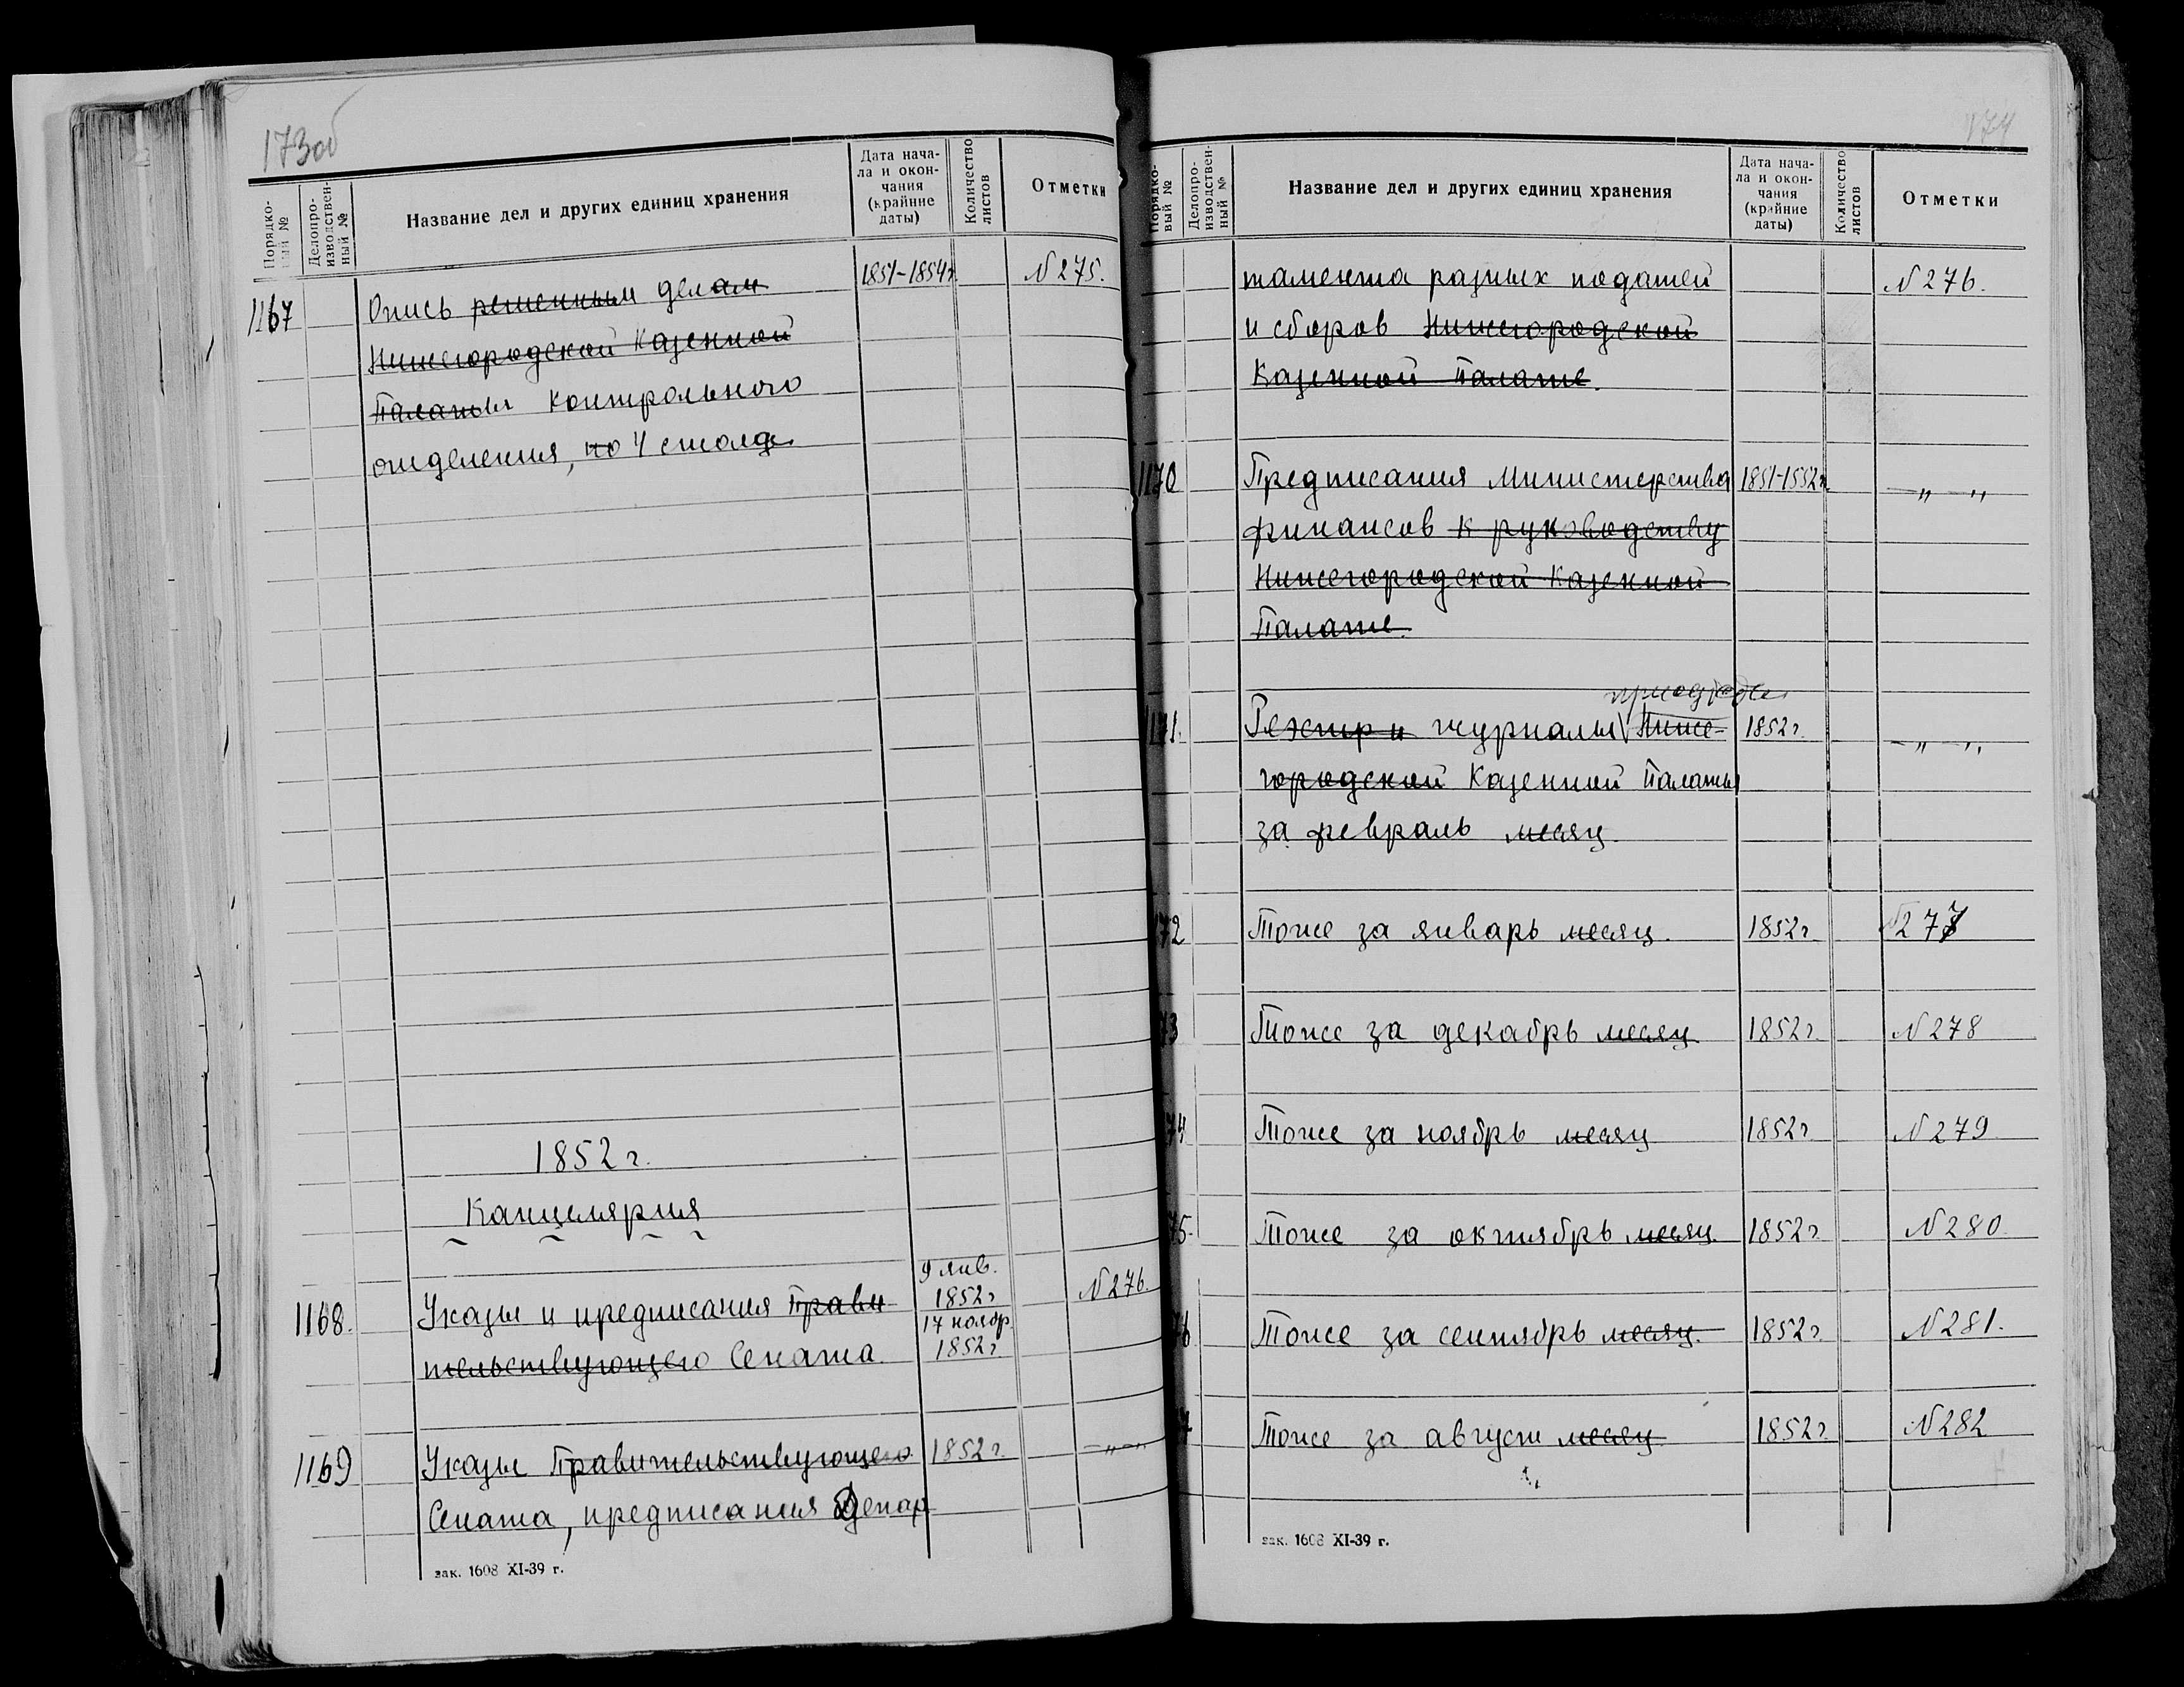 173об
Порядко-
вый №
Делопро-
изводствен-
ный №
Название дел и других единиц хранения
Дата нача-
ла и окон-
чания
(крайние
даты)
Количество
листов
Отметки
1167 Опись решенным делам 1851-1854г. N 275.
Нижегородской Казенной
Палаты Контрольного
отделения, по 4 столу
1852 г.
Канцелярия
1168. Указы и предписания Прави- 9 янв. 1852 г. N 276.
тельствующего Сената. 17 ноябр. 1852 г.
1169 Указы Правительствующего 1852 г. —„—„
Сената, предписания Депар
зак. 1608 XI-39 г.
174
Порядко-
вый №
Делопро-
изводствен-
ный №
Название дел и других единиц хранения
Дата нача-
ла и окон-
чания
(крайние
даты)
Количество
листов
Отметки
тамента разных податей N 276.
и сборов Нижегородской
Казенной Палате.
1170 Предписания Министерства 1851-1552г. —„—„
финансов к руководству
Нижегородской Казенной
Палате.
1171. Реэстр и журналы Ниже- 1852 г. —„—„
городской Казенной Палаты
за февраль месяц.
72 Тоже за январь месяц. 1852 г. N 277
73 Тоже за декабрь месяц 1852 г. N 278
74 Тоже за ноябрь месяц 1852 г. N 279
75. Тоже за октябрь месяц. 1852 г. N 280.
76 Тоже за сентябрь месяц. 1852 г. N 281.
7 Тоже за август месяц. 1852 г. N 282
зак. 1608 XI-39 г.